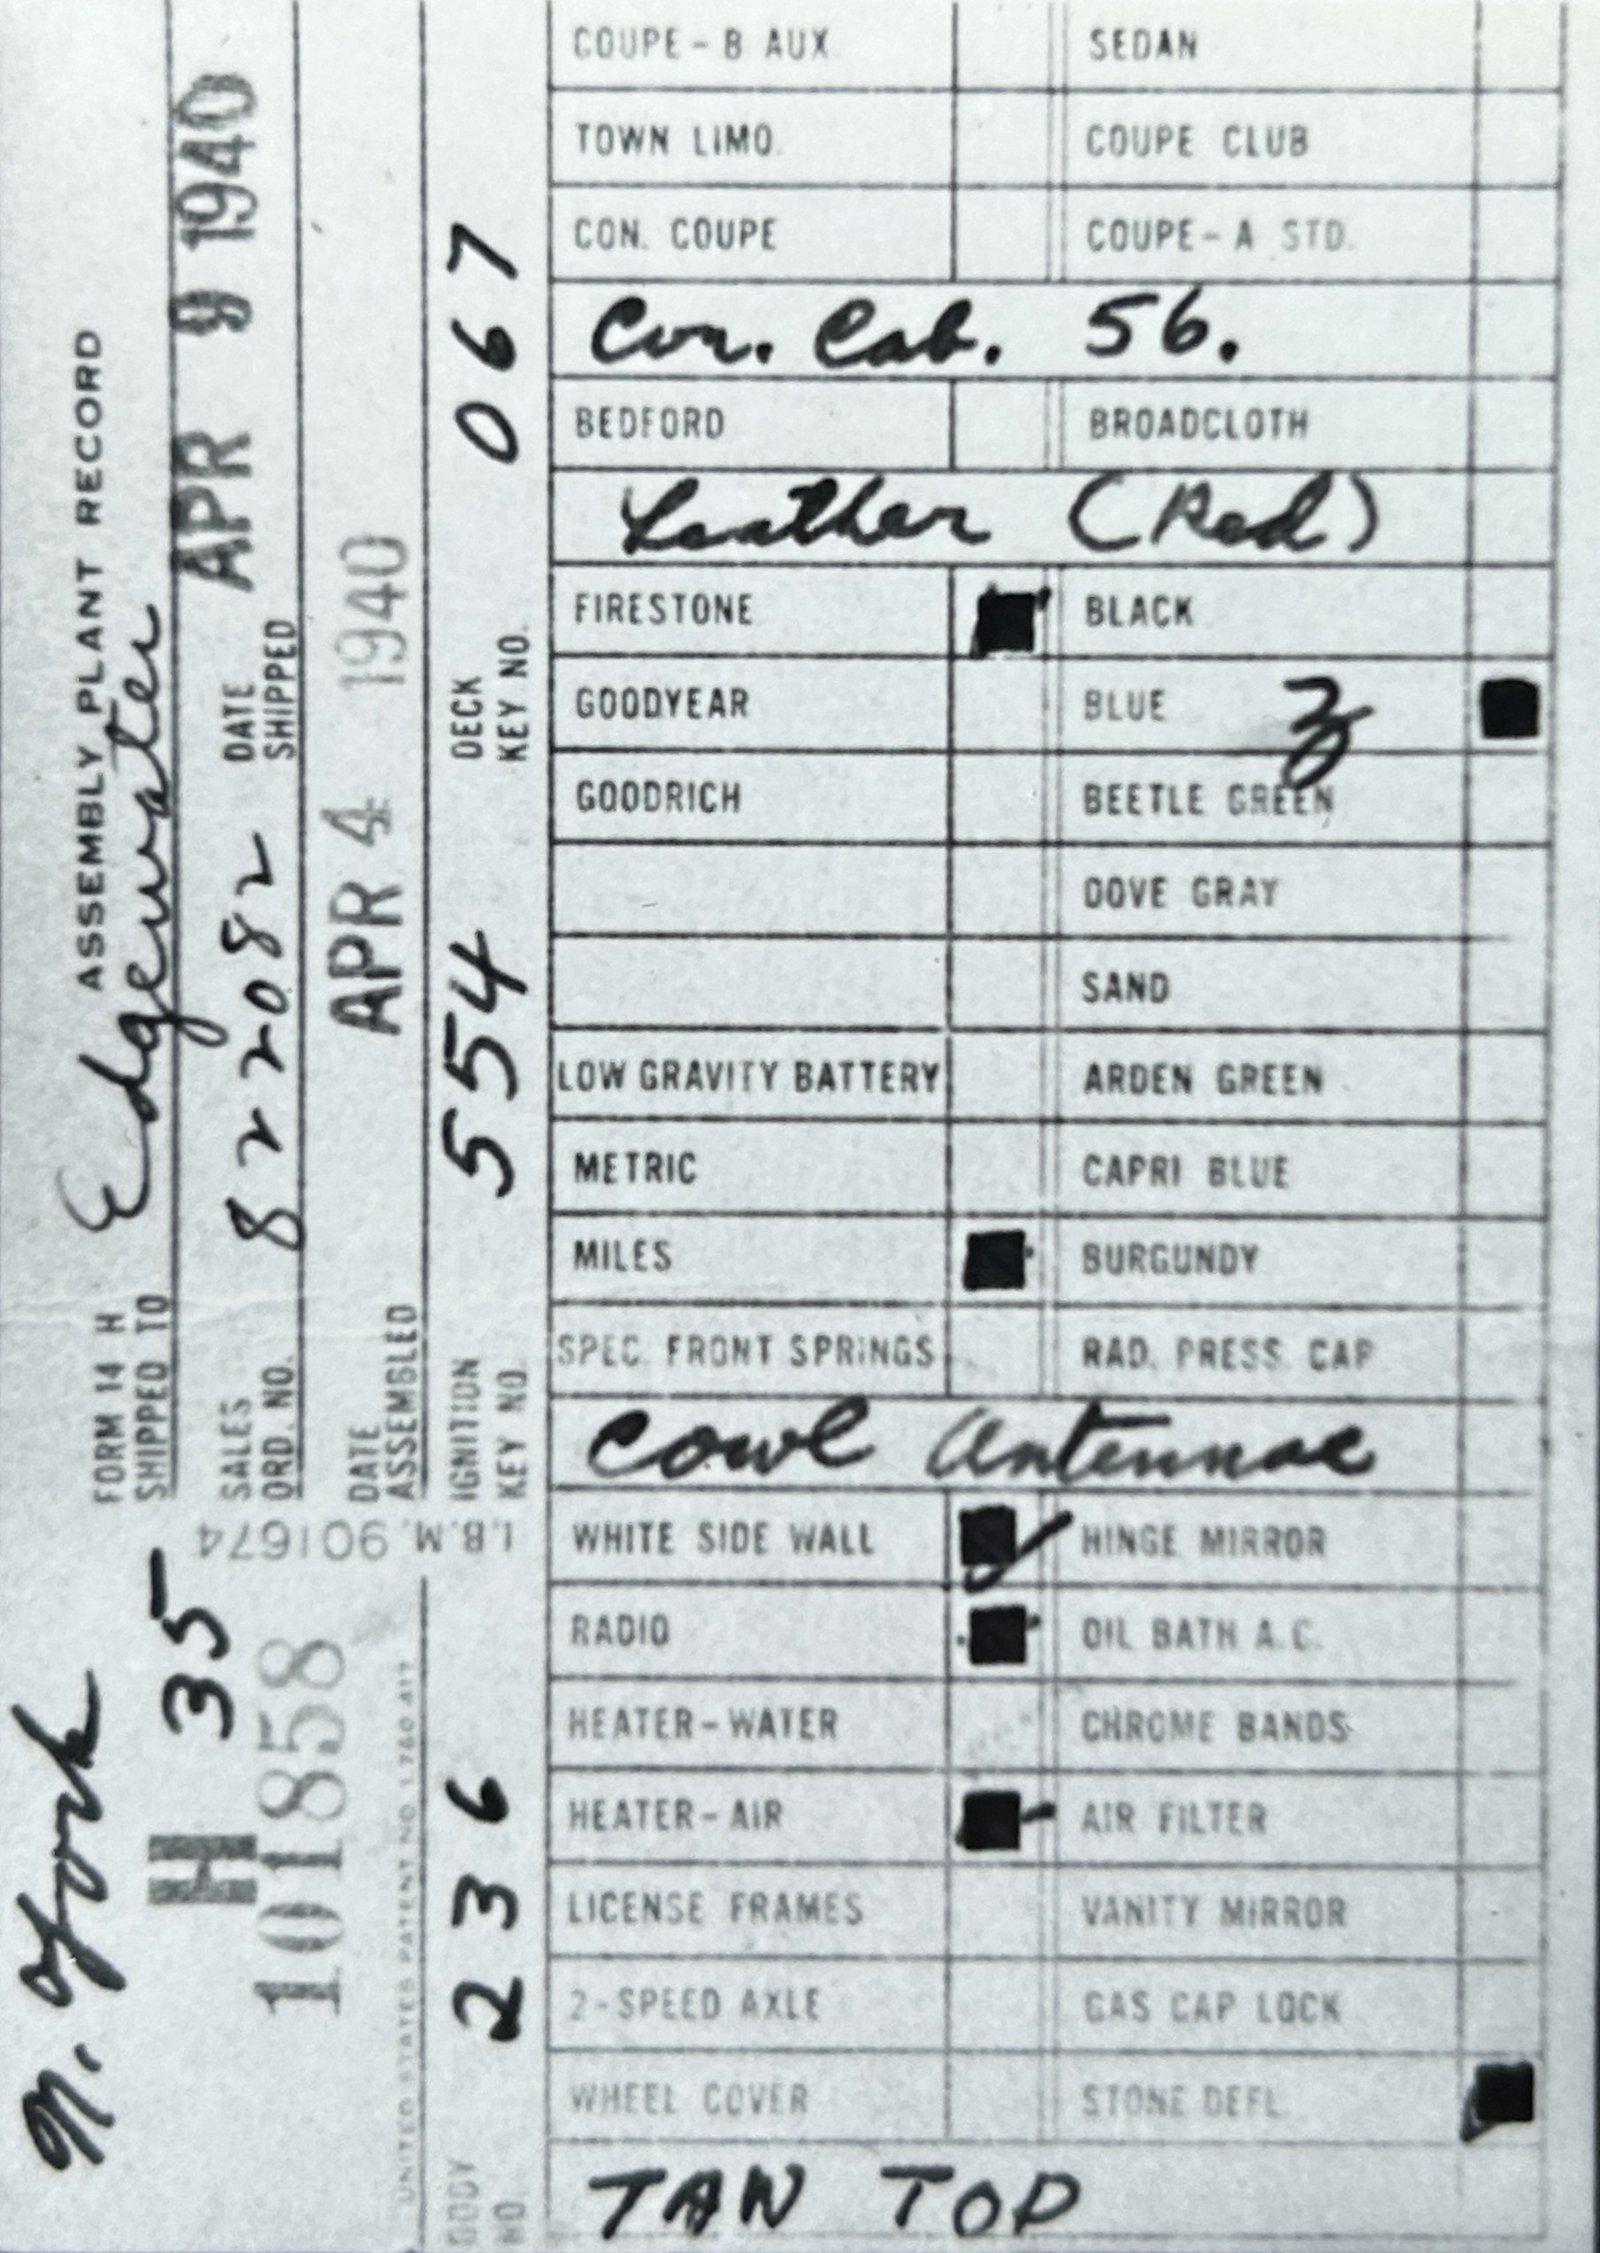 N. York
H 35
101858
FORM 14 H ASSEMBLY PLANT RECORD
SHIPPED TO Edgewater
SALES ORD. NO. 822082 DATE SHIPPED APR 9 1940
DATE ASSEMBLED APR 4 1940
I.B.M. 901674
UNITED STATES PATENT NO. 1,760,417
BODY NO. 236 IGNITION KEY NO. 554 DECK KEY NO. 067
COUPE-B AUX. SEDAN
TOWN LIMO. COUPE CLUB
CON. COUPE COUPE-A STD.
Con. Cab. 56.
BEDFORD BROADCLOTH
Leather (Red)
FIRESTONE BLACK
GOODYEAR BLUE
GOODRICH BEETLE GREEN
DOVE GRAY
SAND
LOW GRAVITY BATTERY ARDEN GREEN
METRIC CAPRI BLUE
MILES BURGUNDY
SPEC. FRONT SPRINGS RAD. PRESS. CAP
Cowl Antennae
WHITE SIDE WALL HINGE MIRROR
RADIO OIL BATH A.C.
HEATER-WATER CHROME BANDS
HEATER-AIR AIR FILTER
LICENSE FRAMES VANITY MIRROR
2-SPEED AXLE GAS CAP LOCK
WHEEL COVER STONE DEFL.
TAN TOP